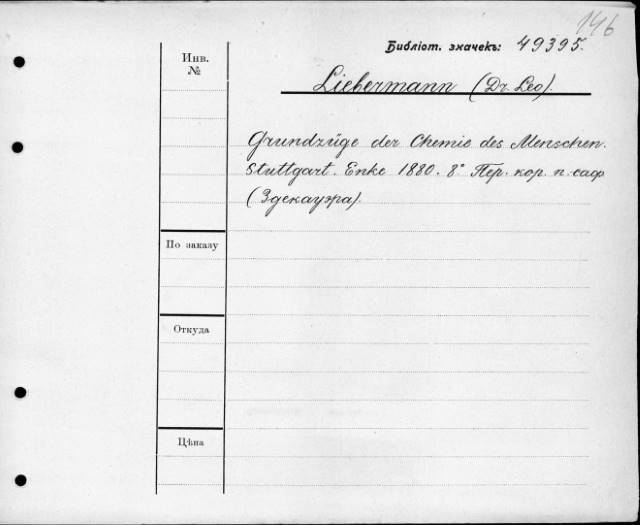 146
Библіот. значекъ: 49395.
Инв.
№
Liebermann (Dr. Leo).
Grundzüge der Chemie des Menschen.
Stuttgart. Enke 1880. 8° Пер. кор. п. саф
(Здекауэра).
По заказу
Откуда
Цѣна